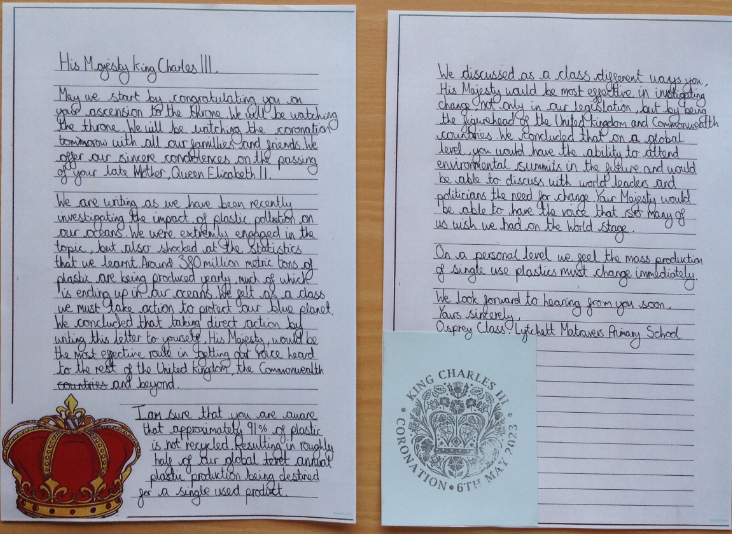 His Majesty King Charles III,
May we start by congratulating you on
your ascension to the throne. We will be watching
the throne. We will be watching the coronation
tommorow with all our families and friends. We
offer our sincere condolences on the passing
of your late Mother, Queen Elizabeth II.
We are writing as we have been recently
investigating the impact of plastic pollution on
our oceans. We were extremely engaged in the
topic, but also shocked at the statistics
that we learnt. Around 380 million metric tons of
plastic are being produced yearly, much of which
is ending up in our oceans. We felt as a class
we must take action to protect our blue planet.
We concluded that taking direct action by
writing this letter to yourself, His Majesty, would be
the most effective route in getting our voice heard
to the rest of the United Kingdom, the Commonwealth
countries and beyond.
I am sure that you are aware
that approximately 91% of plastic
is not recycled. Resulting in roughly
half of our global annual
plastic production being destined
for a single used product.
We discussed as a class different ways you,
His Majesty would be most effective in instigating
change. Not only in our legislation, but by being
the figurehead of the United Kingdom and Commonwealth
countries. We concluded that on a global
level, you would have the ability to attend
environmental summits in the future and would
be able to discuss with world leaders and
politicians the need for change. Your Majesty would
be able to have the voice that so many of
us wish we had on the World stage.
On a personal level we feel the mass production
of single use plastics must change immediately.
We look forward to hearing from you soon.
Yours sincerely,
Osprey Class, Lytchett Matravers Primary School
KING CHARLES III
CORONATION • 6TH MAY 2023